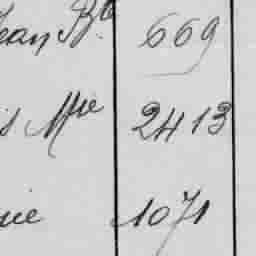 Jean Bte 669
is Mie 2413
rie 1071